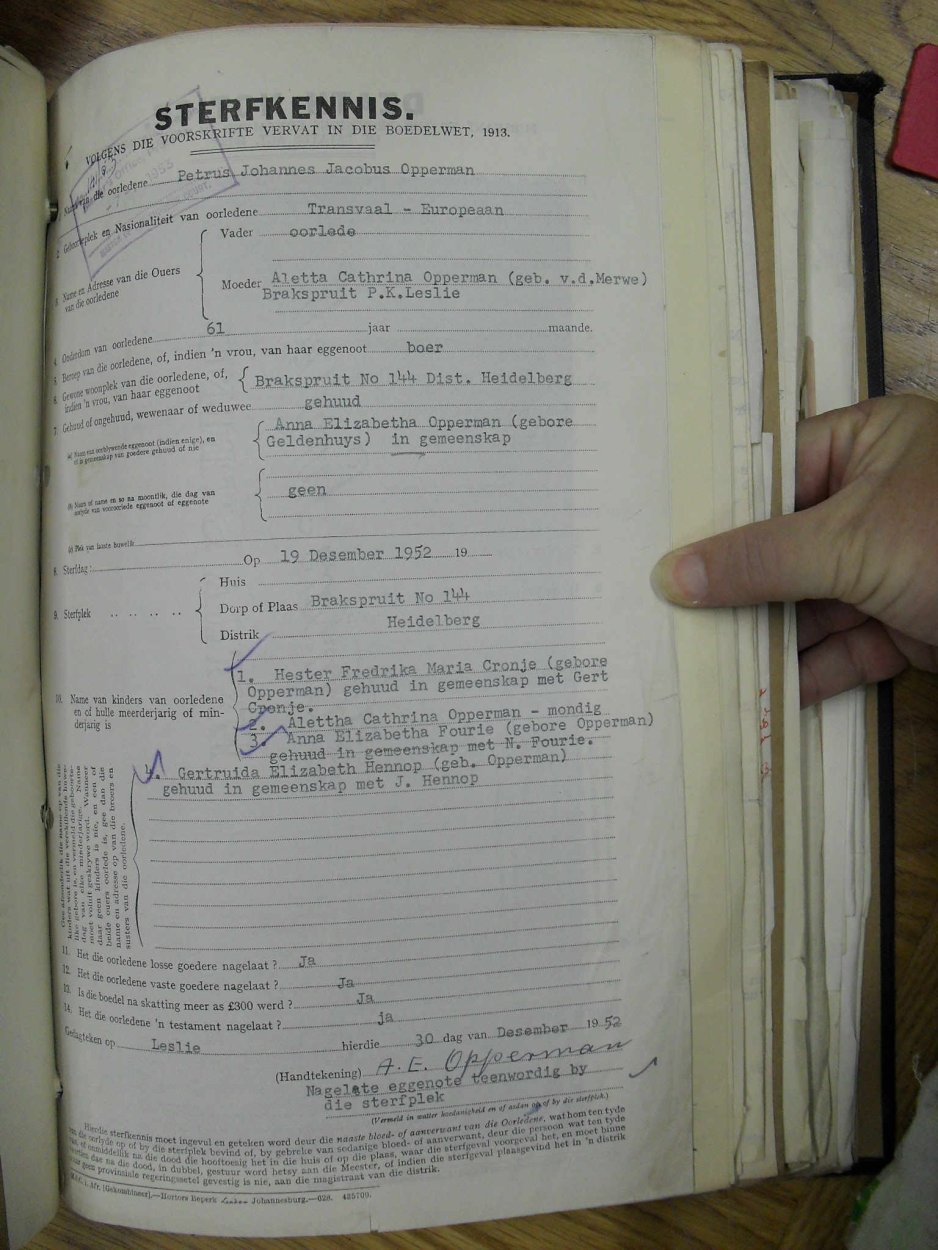 STERFKENNIS.
VOLGENS DIE VOORSKRIFTE VERVAT IN DIE BOEDELWET, 1913.
Naam van die oorledene Petrus Johannes Jacobus Opperman
2. Geboorteplek en Nasionaliteit van oorledene Transvaal - Europeaan
Vader oorlede
3. Name en Adresse van die Ouers van die oorledene
Moeder Aletta Cathrina Opperman (geb. v.d.Merwe)
Brakspruit P.K.Leslie
4. Ouderdom van oorledene 61 jaar maande.
5. Beroep van die oorledene, of, indien 'n vrou, van haar eggenoot boer
6. Gewone woonplek van die oorledene, of, indien 'n vrou, van haar eggenoot Brakspruit No 144 Dist. Heidelberg
7. Gehuud of ongehuud, wewenaar of weduwee gehuud
(a) Naam van oorblywende eggenoot (indien enige), en of in gemeenskap van goedere gehuud of nie
Anna Elizabetha Opperman (gebore
Geldenhuys) in gemeenskap
(b) Naam of name en so na moontlik, die dag van oorlyde van vooroorlede eggenoot of eggenote
geen
(c) Plek van laaste huwelik
8. Sterfdag: Op 19 Desember 1952 19
Huis
9. Sterfplek Dorp of Plaas Brakspruit No 144
Distrik Heidelberg
10. Name van kinders van oorledene en of hulle meerderjarig of minderjarig is
1. Hester Fredrika Maria Cronje (gebore
Opperman) gehuud in gemeenskap met Gert
Cronje.
2. Alettha Cathrina Opperman - mondig
3. Anna Elizabetha Fourie (gebore Opperman)
gehuud in gemeenskap met N. Fourie.
4. Gertruida Elizabeth Hennop (geb. Opperman)
gehuud in gemeenskap met J. Hennop
moet voluit geskrywe word. Wanneer
daar geen kinders is nie, en een of
beide ouers oorlede is, gee dan die
name en adresse op van die broers en
susters van die oorledene.
11. Het die oorledene losse goedere nagelaat? Ja
12. Het die oorledene vaste goedere nagelaat? Ja
13. Is die boedel na skatting meer as £300 werd? Ja
14. Het die oorledene 'n testament nagelaat? ja
Gedagteken op Leslie hierdie 30 dag van Desember 1952
(Handtekening) A. E. Opperman
Nagelate eggenote teenwordig by
die sterfplek
(Vermeld in watter hoedanigheid en of aedan op of by die sterfplek.)
Hierdie sterfkennis moet ingevul en geteken word deur die naaste bloed- of aanverwant van die Oorledene, wat hom ten tyde
van die oorlyde op of by die sterfplek bevind of, by gebreke van sodanige bloed- of aanverwant, deur die persoon wat ten tyde
of onmiddellik na die dood die hooftoesig het in die huis of op die plaas, waar die sterfgeval voorgeval het, en moet binne
dae na die dood, in dubbel, gestuur word hetsy aan die Meester, of indien die sterfgeval plaasgevind het in 'n distrik
waar geen provinsiale regeringssetel gevestig is nie, aan die magistraat van die distrik.
Afr. (Gekombineer).—Hortors Beperk Johannesburg.—028. 485709.